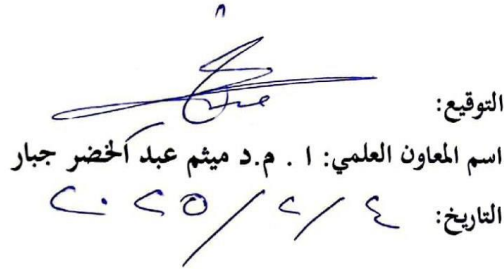 التوقيع:
اسم المعاون العلمي: ا . م.د ميثم عبد الخضر جبار
التاريخ: ٤ / ٢ / ٢٠٢٥